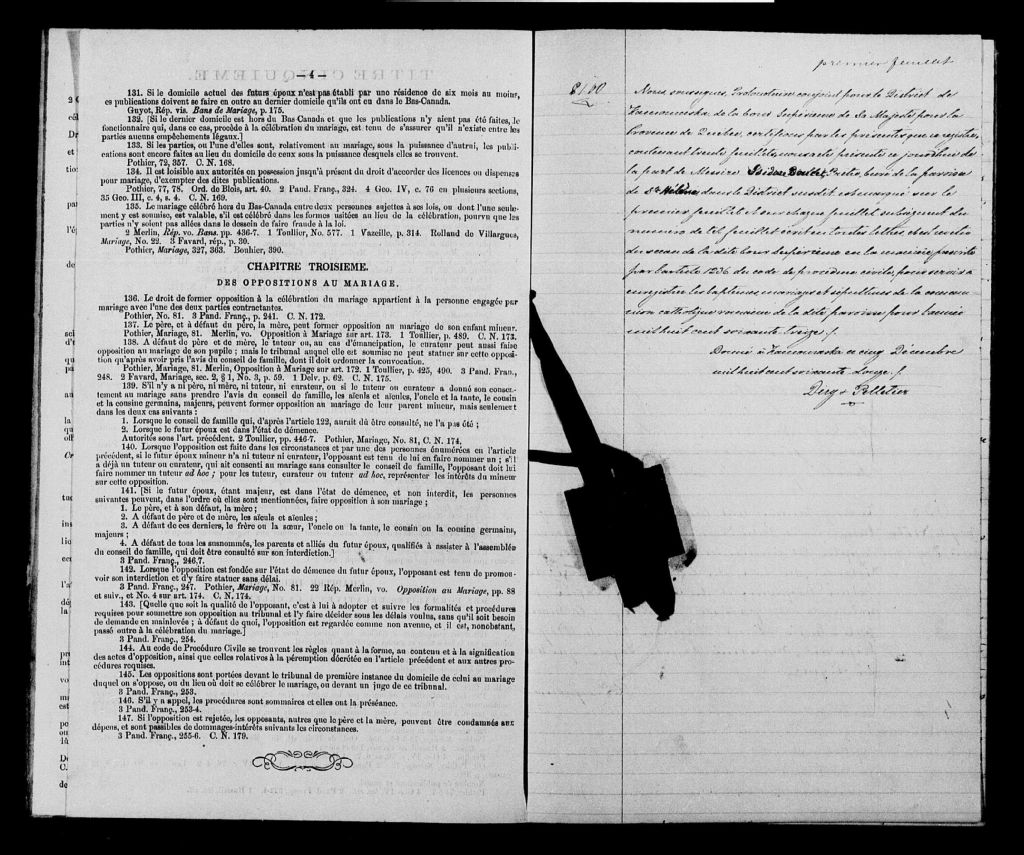 — 4 —
131. Si le domicile actuel des futurs époux n'est pas établi par une résidence de six mois au moins,
les publications doivent se faire en outre au dernier domicile qu'ils ont eu dans le Bas-Canada.
Guyot, Rép. vis. Bans de Mariage, p. 175.
132. [Si le dernier domicile est hors du Bas Canada et que les publications n'y aient pas été faites, le
fonctionnaire qui, dans ce cas, procède à la célébration du mariage, est tenu de s'assurer qu'il n'existe entre les
parties aucuns empêchements légaux.]
133. Si les parties, ou l'une d'elles sont, relativement au mariage, sous la puissance d'autrui, les publi-
cations sont encore faites au lieu du domicile de ceux sous la puissance desquels elles se trouvent.
Pothier, 72, 357. C. N. 168.
134. Il est loisible aux autorités en possession jusqu'à présent du droit d'accorder des licences ou dispenses
pour mariage, d'exempter des dites publications.
Pothier, 77, 78. Ord. de Blois, art. 40. 2 Pand. Franç., 324. 4 Geo. IV, c. 76 en plusieurs sections,
35 Geo. III, c. 4, s. 4. C. N. 169.
135. Le mariage célébré hors du Bas-Canada entre deux personnes sujettes à ses lois, ou dont l'une seule-
ment y est soumise, est valable, s'il est célébré dans les formes usitées au lieu de la célébration, pourvu que les
parties n'y soient pas allées dans le dessein de faire fraude à la loi.
2 Merlin, Rép. vo. Bans, pp. 436-7. 1 Toullier, No. 577. 1 Vazeille, p. 314. Rolland de Villargues,
Mariage, No. 22. 3 Favard, rép., p. 30.
Pothier, Mariage, 327, 363. Bouhier, 390.
CHAPITRE TROISIEME.
DES OPPOSITIONS AU MARIAGE.
136. Le droit de former opposition à la célébration du mariage appartient à la personne engagée par
mariage avec l'une des deux parties contractantes.
Pothier, No. 81. 3 Pand. Franç., p. 241. C. N. 172.
137. Le père, et à défaut du père, la mère, peut former opposition au mariage de son enfant mineur.
Pothier, Mariage, 81. Merlin, vo. Opposition à Mariage sur art. 173. 1 Toullier, p. 489. C. N. 173.
138. A défaut de père et de mère, le tuteur ou, au cas d'émancipation, le curateur peut aussi faire
opposition au mariage de son pupile; mais le tribunal auquel elle est soumise ne peut statuer sur cette opposi-
tion qu'après avoir pris l'avis du conseil de famille, dont il doit ordonner la convocation.
Pothier, Mariage, 81. Merlin, Opposition à Mariage sur art. 172. 1 Toullier, p. 425, 490. 3 Pand. Fran.,
248. 2 Favard, Mariage, sec. 2, § 1, No. 3, p. 59. 1 Delv. p. 62. C. N. 175.
139. S'il n'y a ni père, ni mère, ni tuteur, ni curateur, ou si le tuteur ou curateur a donné son consen-
tement au mariage sans prendre l'avis du conseil de famille, les aïeuls et aïeules, l'oncle et la tante, le cousin
et la cousine germains, majeurs, peuvent former opposition au mariage de leur parent mineur, mais seulement
dans les deux cas suivants :
1. Lorsque le conseil de famille qui, d'après l'article 122, aurait dû être consulté, ne l'a pas été ;
2. Lorsque le futur époux est dans l'état de démence.
Autorités sous l'art. précédent. 2 Toullier, pp. 446-7. Pothier, Mariage, No. 81, C. N. 174.
140. Lorsque l'opposition est faite dans les circonstances et par une des personnes énumérées en l'article
précédent, si le futur époux mineur n'a ni tuteur ni curateur, l'opposant est tenu de lui en faire nommer un ; s'il
a déjà un tuteur ou curateur, qui ait consenti au mariage sans consulter le conseil de famille, l'opposant doit lui
faire nommer un tuteur ad hoc ; pour les tuteur, curateur ou tuteur ad hoc, représenter les intérêts du mineur
sur cette opposition.
141. [Si le futur époux, étant majeur, est dans l'état de démence, et non interdit, les personnes
suivantes peuvent, dans l'ordre où elles sont mentionnées, faire opposition à son mariage ;
1. Le père, et à son défaut, la mère ;
2. A défaut de père et de mère, les aïeuls et aïeules ;
3. A défaut de ces derniers, le frère ou la sœur, l'oncle ou la tante, le cousin ou la cousine germains,
majeurs ;
4. A défaut de tous les susnommés, les parents et alliés du futur époux, qualifiés à assister à l'assemblée
du conseil de famille, qui doit être consulté sur son interdiction.]
3 Pand. Franç., 246,7.
142. Lorsque l'opposition est fondée sur l'état de démence du futur époux, l'opposant est tenu de promou-
voir son interdiction et d'y faire statuer sans délai.
3 Pand. Franç., 247. Pothier, Mariage, No. 81. 22 Rép. Merlin, vo. Opposition au Mariage, pp. 88
et suiv., et No. 4 sur art. 174. C. N. 174.
143. [Quelque soit la qualité de l'opposant, c'est à lui à adopter et suivre les formalités et procédures
requises pour soumettre son opposition au tribunal et l'y faire décider sous les délais voulus, sans qu'il soit besoin
de demande en mainlevée ; à défaut de quoi, l'opposition est regardée comme non avenue, et il est, nonobstant,
passé outre à la célébration du mariage.]
3 Pand. Franç., 254.
144. Au code de Procédure Civile se trouvent les règles quant à la forme, au contenu et à la signification
des actes d'opposition, ainsi que celles relatives à la péremption décrétée en l'article précédent et aux autres pro-
cédures requises.
145. Les oppositions sont portées devant le tribunal de première instance du domicile de celui au mariage
duquel on s'oppose, ou du lieu où doit se célébrer le mariage, ou devant un juge de ce tribunal.
3 Pand. Franç., 253.
146. S'il y a appel, les procédures sont sommaires et elles ont la préséance.
3 Pand. Franç., 253-4.
147. Si l'opposition est rejetée, les opposants, autres que le père et la mère, peuvent être condamnés aux
dépens, et sont passibles de dommages-intérêts suivants les circonstances.
3 Pand. Franç., 255-6. C. N. 179.
premier feuillet
Nous soussignés, Protonotaire conjoint pour le District de
Kamouraska de la Cour Supérieure de Sa Majesté pour la
Province de Québec, certifions par les présentes que ce registre,
contenant trente feuillets, nous a été présenté ce jourd'hui de
la part de Messire Prêtre, Curé de la paroisse
de Ste Hélène dans le District susdit est marqué sur le
premier feuillet et sur chaque feuillet subséquent du
numéro de tel feuillet écrit en toutes lettres, et est revêtu
du sceau de la dite Cour Supérieure en la manière prescrite
par l'article 1236 du code de procédure civile, pour servir à
enregistrer les baptêmes mariages et sépultures de la commu
nion catholique romaine de la dite paroisse pour l'année
mil huit cent soixante treize./.
Donné à Kamouraska ce cinq Décembre
mil huit cent soixante douze./.
& Pelletier